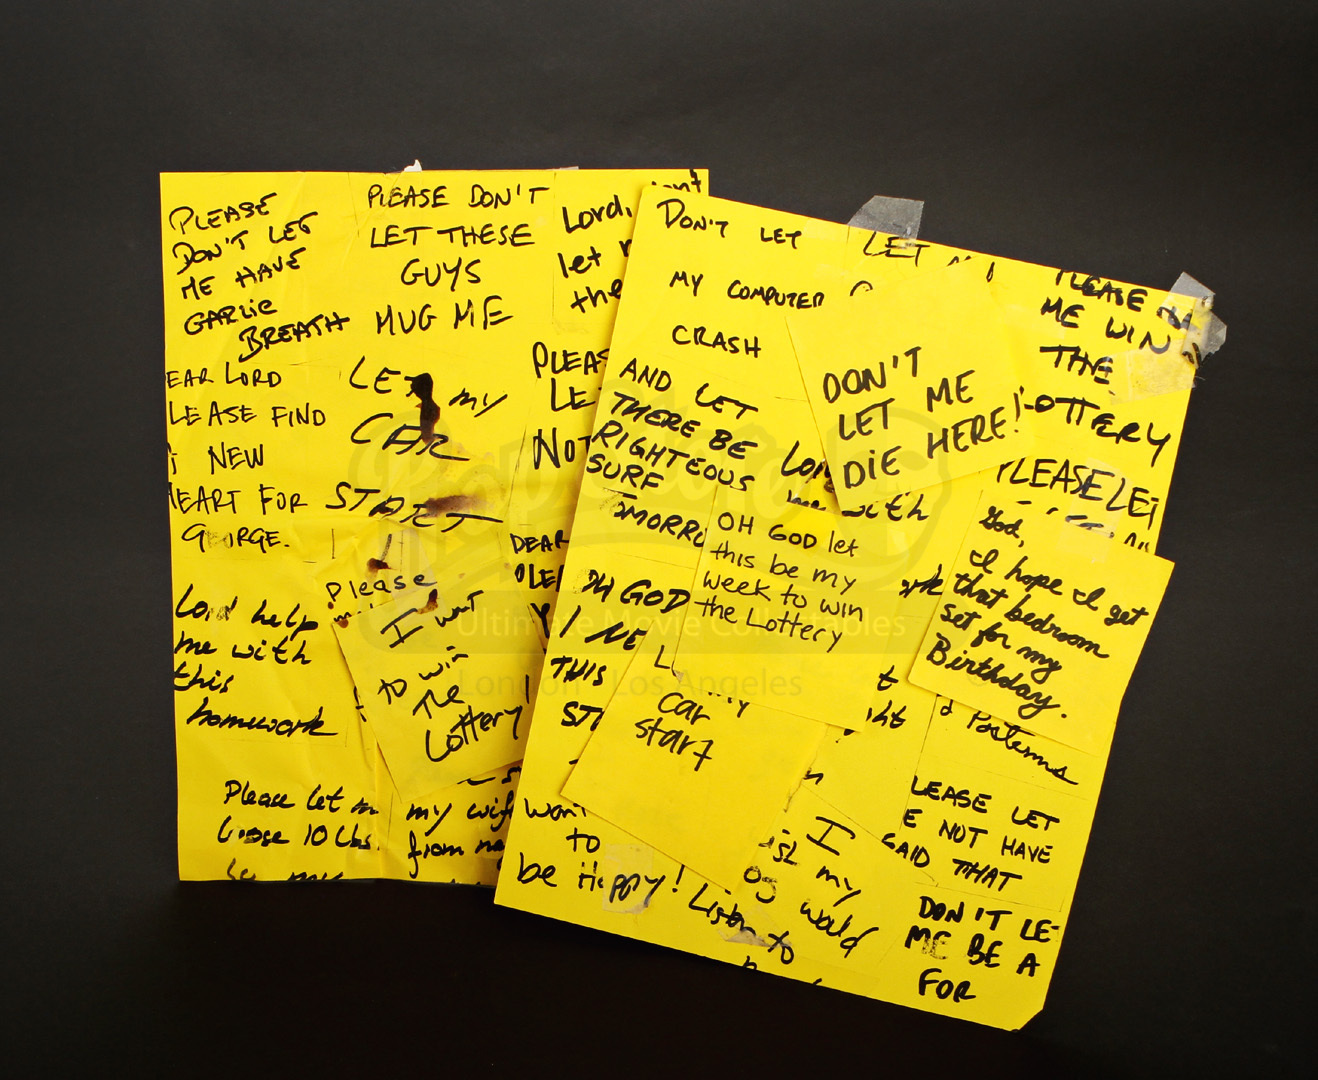 PLEASE
DON'T LET
ME HAVE
GARLIC
BREATH
PLEASE DON'T
LET THESE
GUYS
MUG ME
Lord,
let
the
EAR LORD
LEASE FIND
NEW
HEART FOR
GEORGE.
LET my
CAR
START
PLEAS
LE
NOT
DEAR
PLEA
Lord help
me with
this
homework
Please
I want
to win
The
Lottery!
Please let m
loose 10 lbs.
my wif
from na
DON'T LET
MY COMPUTER
CRASH
AND LET
THERE BE
RIGHTEOUS
SURF
TOMORRO
LET
DON'T
LET ME
DIE HERE!
PLEASE
ME WIN
THE
LOTTERY
Lord
me with
PLEASE LET
OH GOD let
this be my
week to win
the Lottery
God,
I hope I get
that bedroom
set for my
Birthday.
OH GOD
I NE
THIS
ST
car
start
want
to
be Happy!
Listen to
I
my
would
LEASE LET
E NOT HAVE
SAID THAT
DON'T LE
ME BE A
FOR
PropStore
Ultimate Movie Collectables
London - Los Angeles